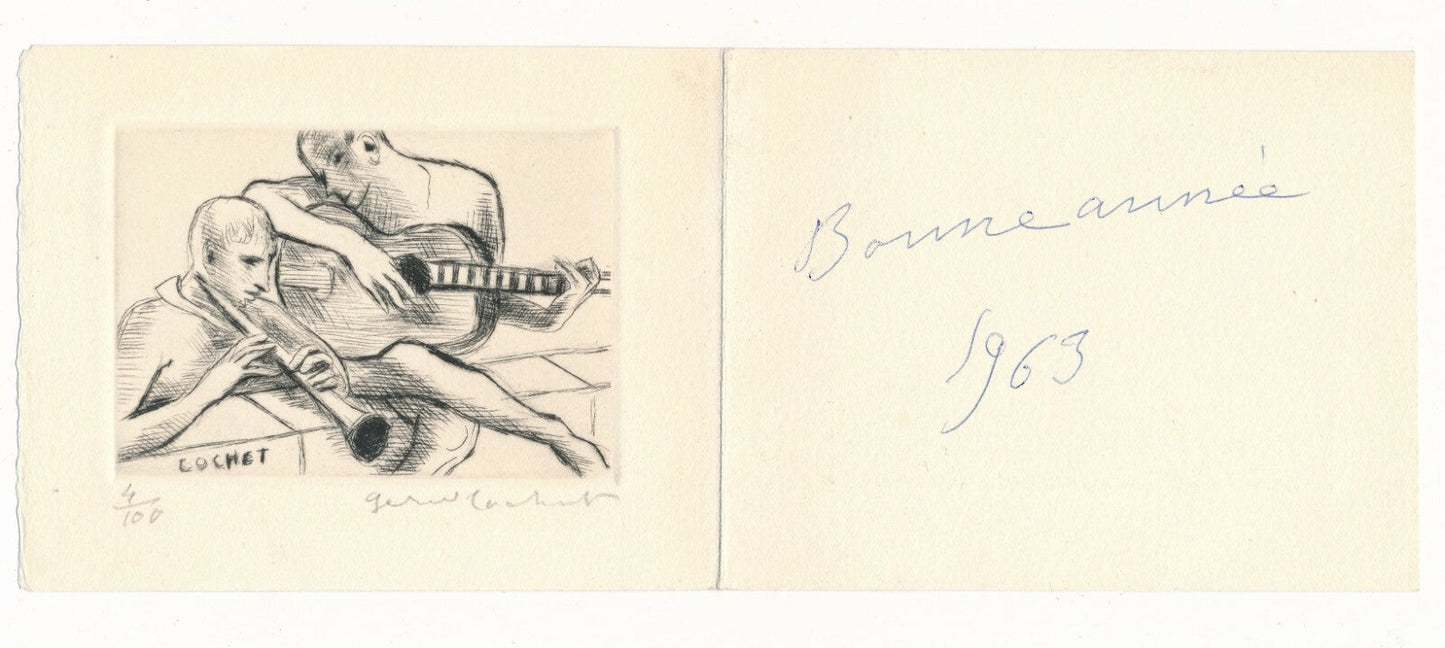 COCHET
4/100
Gérard Cochet
Bonne année
1963